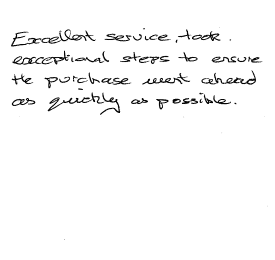 Excellent service, took.
exceptional steps to ensure
the purchase went ahead
as quickly as possible.